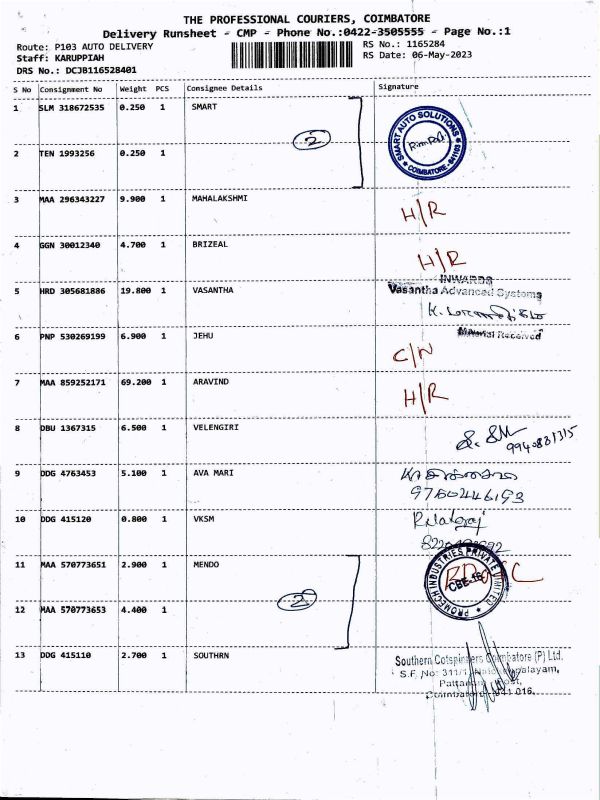 THE PROFESSIONAL COURIERS, COIMBATORE
Delivery Runsheet - CMP - Phone No.:0422-3505555 - Page No.:1
Route: P103 AUTO DELIVERY
Staff: KARUPPIAH
DRS No.: DCJB116528401
RS No.: 1165284
RS Date: 06-May-2023
S No Consignment No Weight PCS Consignee Details Signature
1 SLM 318672535 0.250 1 SMART
SMART AUTO SOLUTIONS
COIMBATORE - 641103
2
2 TEN 1993256 0.250 1
3 MAA 296343227 9.900 1 MAHALAKSHMI H/R
4 GGN 30012340 4.700 1 BRIZEAL H/R
INWARDS
5 HRD 305681886 19.800 1 VASANTHA Vasantha Advanced Systems
Material Received
6 PNP 530269199 6.900 1 JEHU C/N
7 MAA 859252171 69.200 1 ARAVIND H/R
8 DBU 1367315 6.500 1 VELENGIRI
9940831315
9 DDG 4763453 5.100 1 AVA MARI
9750446193
10 DDG 415120 0.800 1 VKSM
11 MAA 570773651 2.900 1 MENDO
PROMECH INDUSTRIES PRIVATE LIMITED
CBE-16
2
12 MAA 570773653 4.400 1
13 DDG 415110 2.700 1 SOUTHRN Southern Cotspinners Coimbatore (P) Ltd.
S.F. No: 311/1